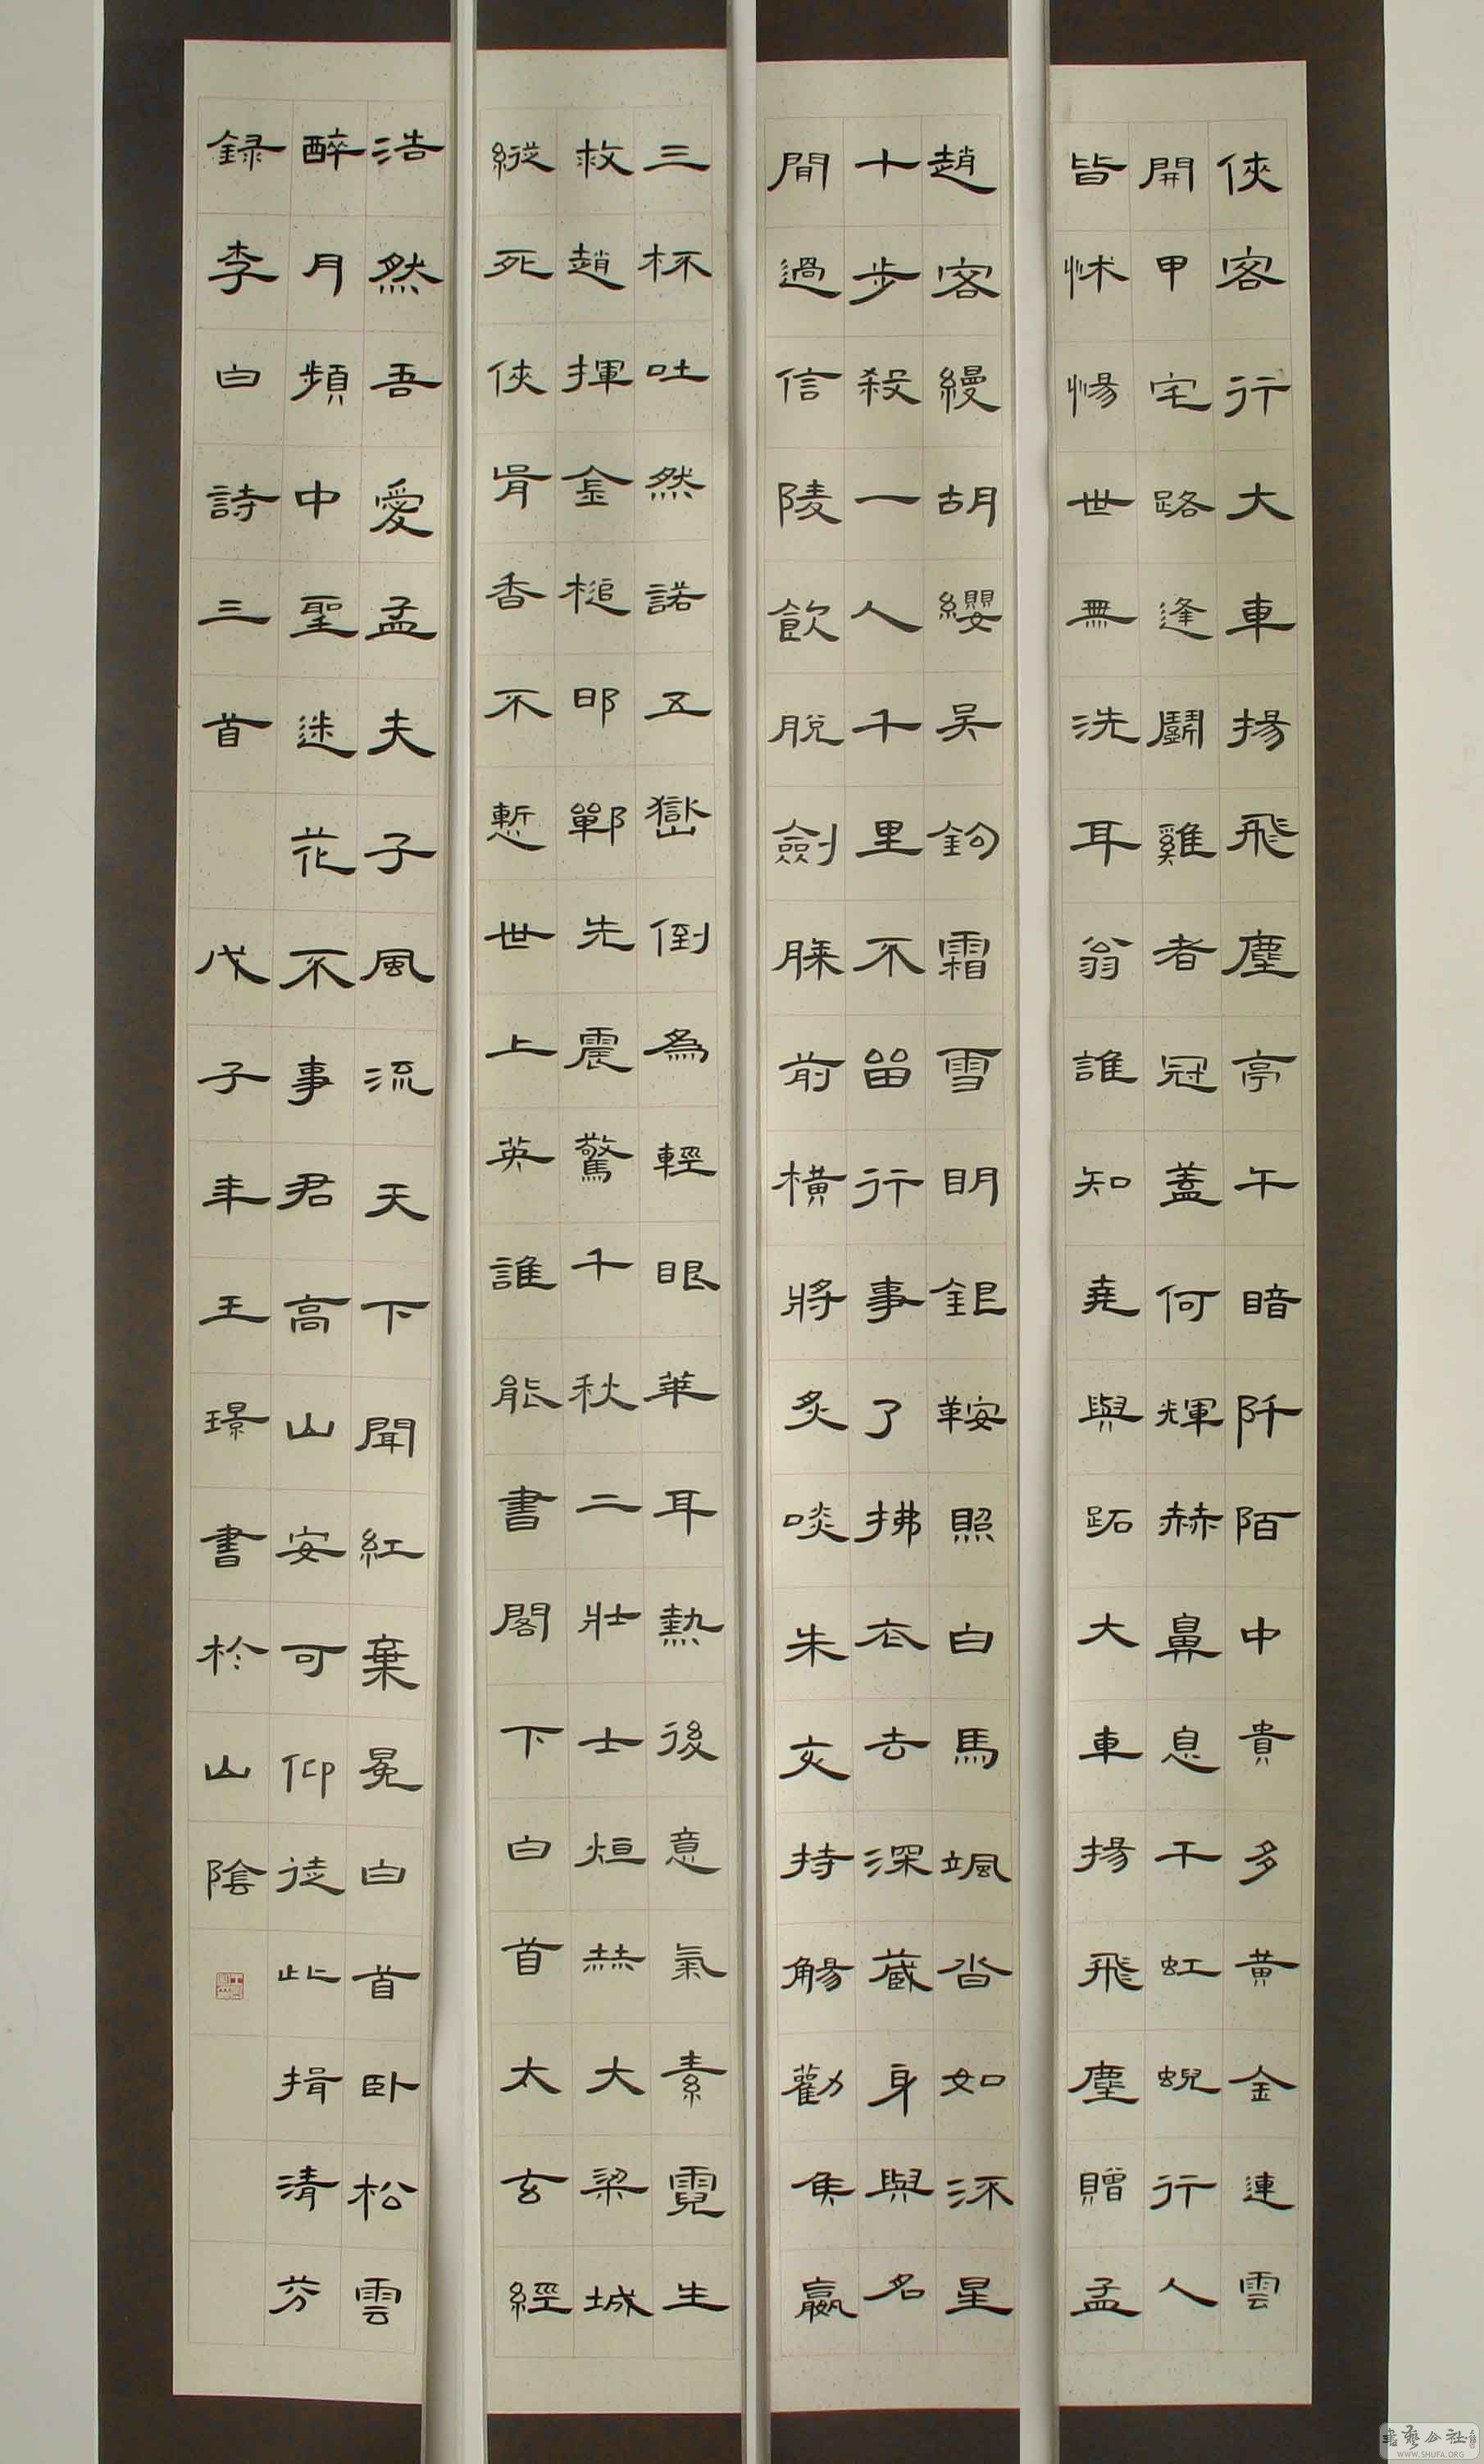 俠客行大車揚飛塵亭午暗阡陌中貴多黃金連雲
開甲宅路逢鬭雞者冠蓋何輝赫鼻息干虹蜺行人
皆怵惕世無洗耳翁誰知堯與跖大車揚飛塵贈孟
趙客縵胡纓吳鉤霜雪明銀鞍照白馬颯沓如流星
十步殺一人千里不留行事了拂衣去深藏身與名
閒過信陵飲脫劍膝前橫將炙啖朱亥持觴勸侯嬴
三杯吐然諾五嶽倒為輕眼華耳熱後意氣素霓生
救趙揮金槌邯鄲先震驚千秋二壯士烜赫大梁城
縱死俠骨香不慙世上英誰能書閣下白首太玄經
浩然吾愛孟夫子風流天下聞紅棄冕白首臥松雲
醉月頻中聖迷花不事君高山安可仰徒此揖清芬
録李白詩三首 戊子年王璟書於山陰
書藝公社
WWW.SHUFA.ORG